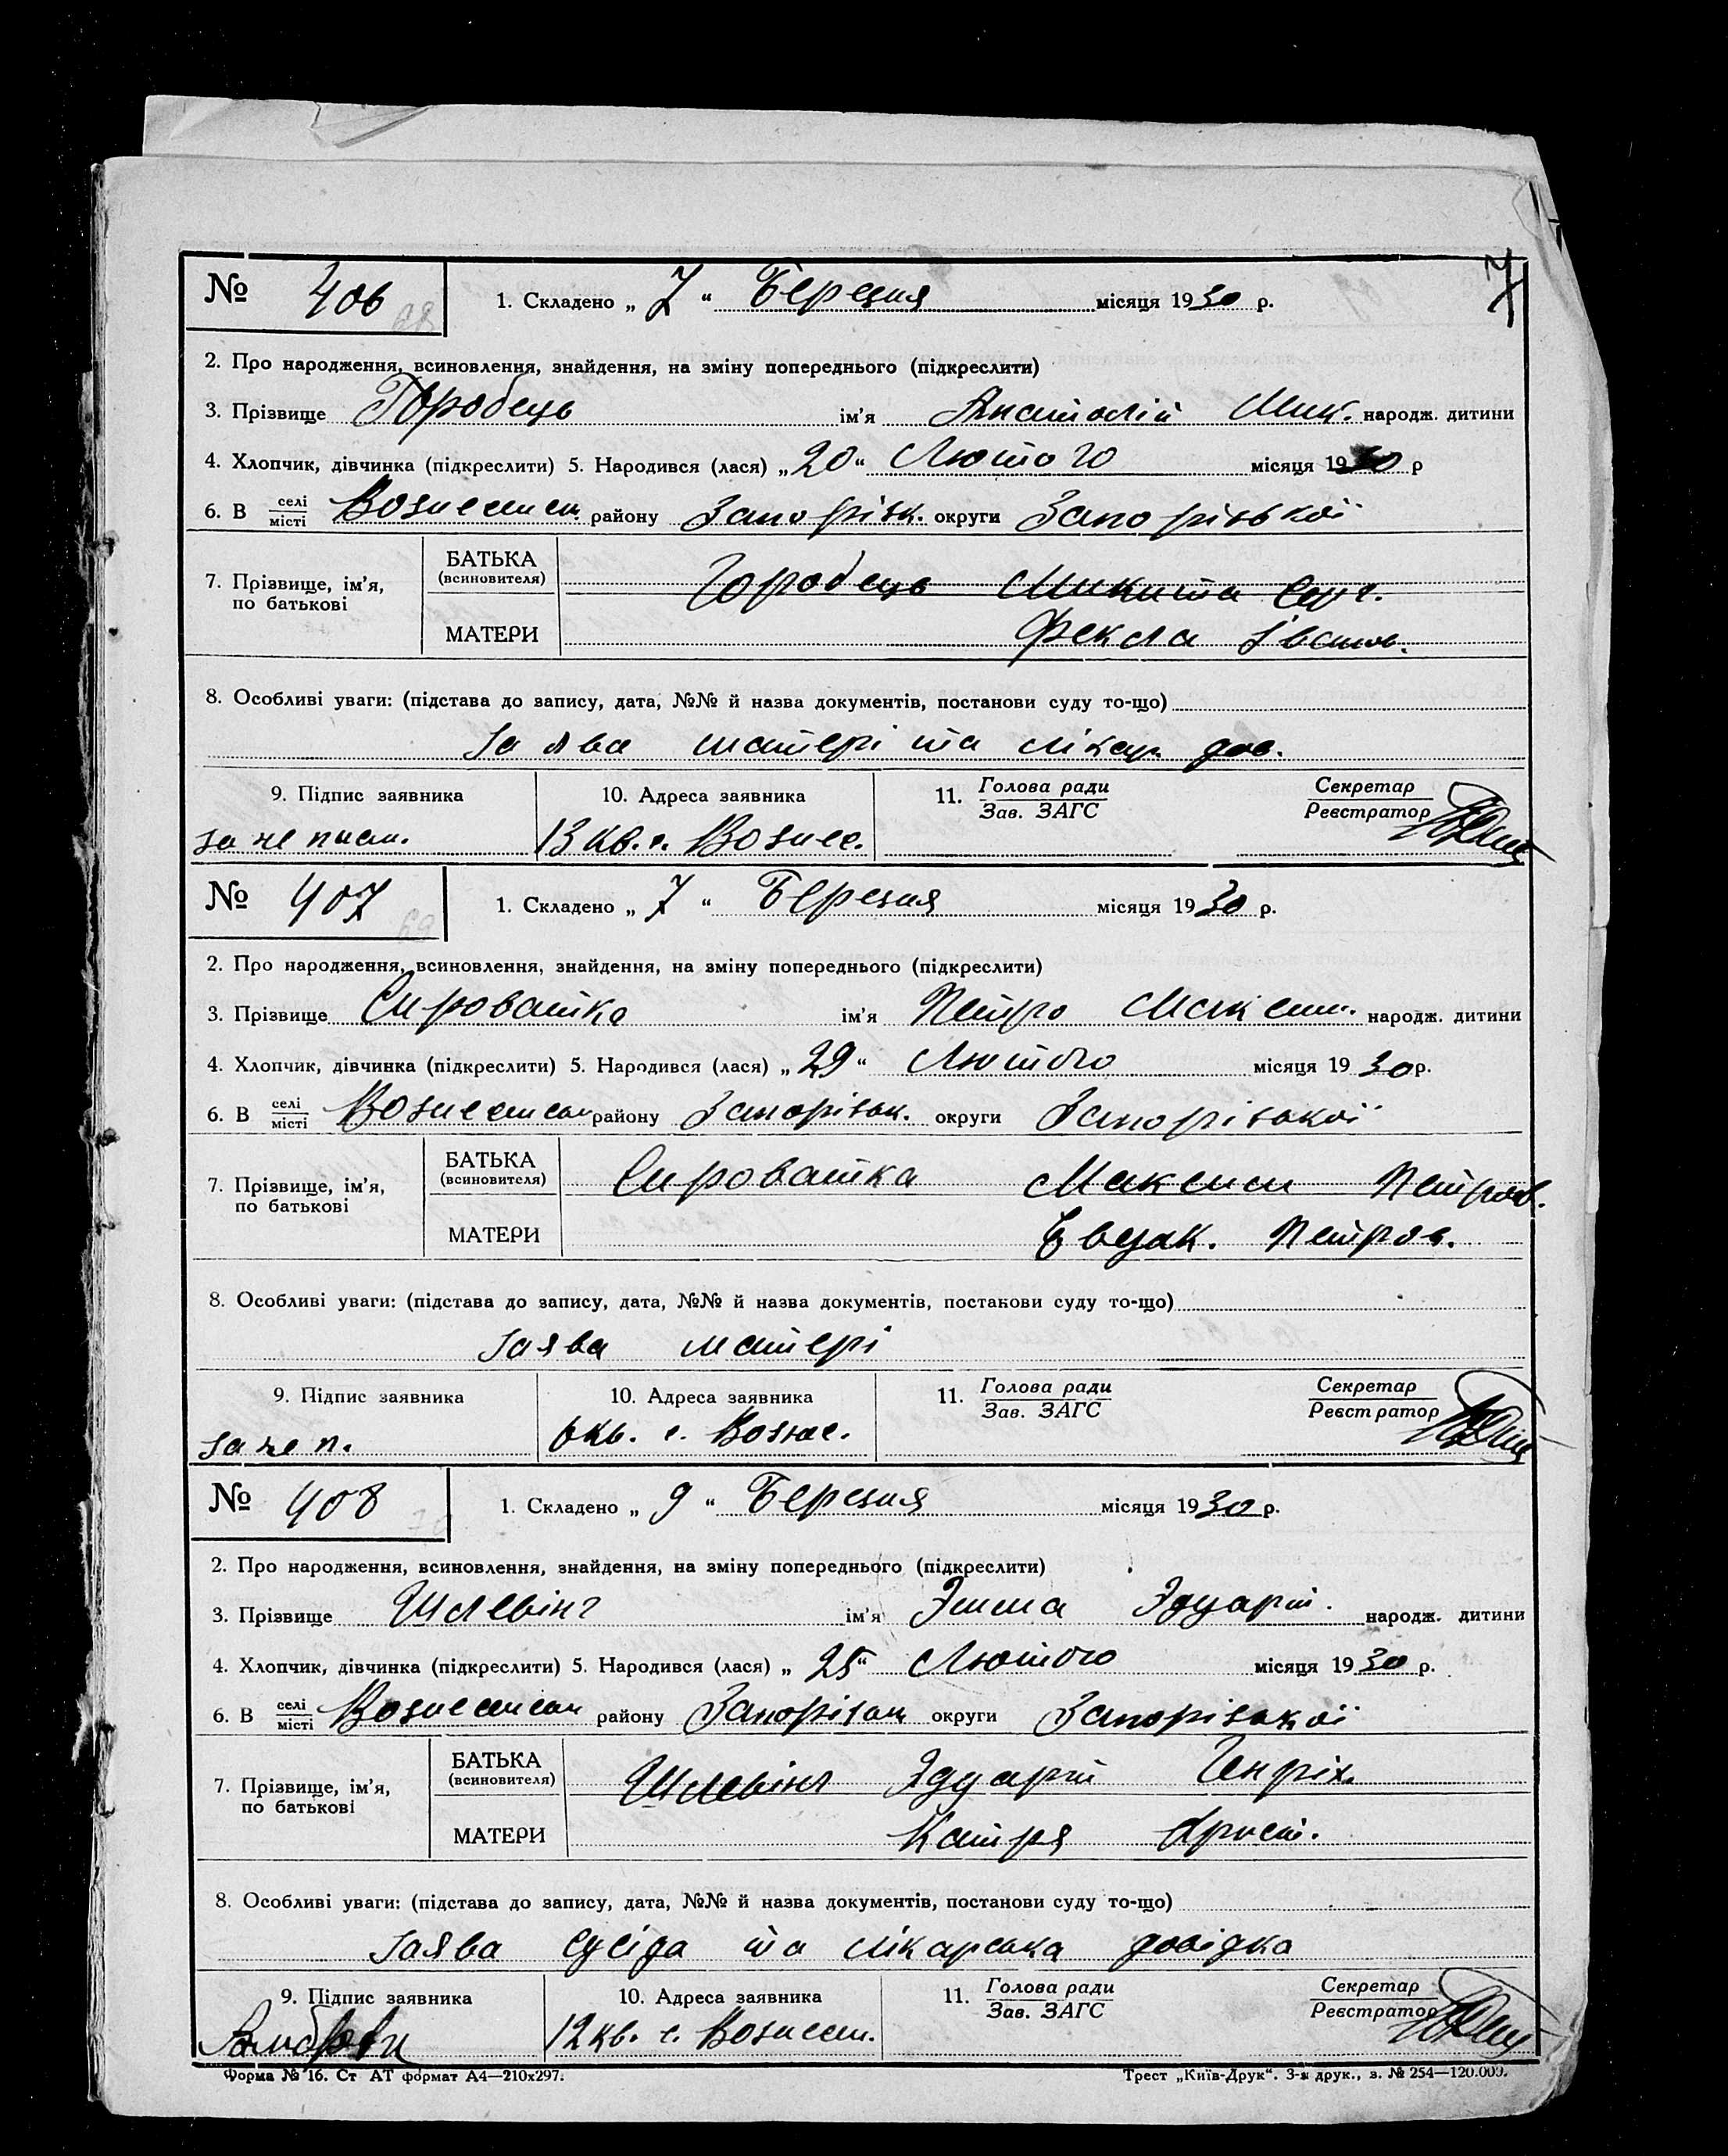 7
№ 406 1. Складено „ 7 “ Березня місяця 1930 р.
2. Про народження, всиновлення, знайдення, на зміну попереднього (підкреслити)
3. Прізвище Горобець ім'я Анатолій Мик. народж. дитини
4. Хлопчик, дівчинка (підкреслити) 5. Народився (лася) „ 20 “ Лютого місяця 1930 р
6. В селі/місті Вознесенсн. району Запорізк. округи Запорізької
7. Прізвище, ім'я, по батькові
БАТЬКА (всиновителя) Горобець Микита Серг.
МАТЕРИ Фекла Іванов.
8. Особливі уваги: (підстава до запису, дата, №№ й назва документів, постанови суду то-що)
Заява матері та лікар. дов.
9. Підпис заявника 10. Адреса заявника 11. Голова ради/Зав. ЗАГС Секретар/Реєстратор
за не письм. 13 кв. с. Вознес.
№ 407 1. Складено „ 7 “ Березня місяця 1930 р.
2. Про народження, всиновлення, знайдення, на зміну попереднього (підкреслити)
3. Прізвище Сироватка ім'я Петро Максим. народж. дитини
4. Хлопчик, дівчинка (підкреслити) 5. Народився (лася) „ 29 “ Лютого місяця 1930 р.
6. В селі/місті Вознесенськ району Запорізьк. округи Запорізької
7. Прізвище, ім'я, по батькові
БАТЬКА (всиновителя) Сироватка Максим Петров.
МАТЕРИ Євдок. Петров.
8. Особливі уваги: (підстава до запису, дата, №№ й назва документів, постанови суду то-що)
Заява матері
9. Підпис заявника 10. Адреса заявника 11. Голова ради/Зав. ЗАГС Секретар/Реєстратор
за не п. 6 кв. с. Вознес.
№ 408 1. Складено „ 9 “ Березня місяця 1930 р.
2. Про народження, всиновлення, знайдення, на зміну попереднього (підкреслити)
3. Прізвище Шлевінг ім'я Эмма Эдуарт. народж. дитини
4. Хлопчик, дівчинка (підкреслити) 5. Народився (лася) „ 25 “ Лютого місяця 1930 р.
6. В селі/місті Вознесенськ району Запорізьк округи Запорізької
7. Прізвище, ім'я, по батькові
БАТЬКА (всиновителя) Шлевінг Эдуарт Генріх.
МАТЕРИ Катря Христ.
8. Особливі уваги: (підстава до запису, дата, №№ й назва документів, постанови суду то-що)
Заява сусіда та лікарська довідка
9. Підпис заявника 10. Адреса заявника 11. Голова ради/Зав. ЗАГС Секретар/Реєстратор
12 кв. с. Вознесен.
Форма № 16. Ст АТ формат А4—210х297. Трест „Київ-Друк“. 3-я друк., з. № 254—120.000.